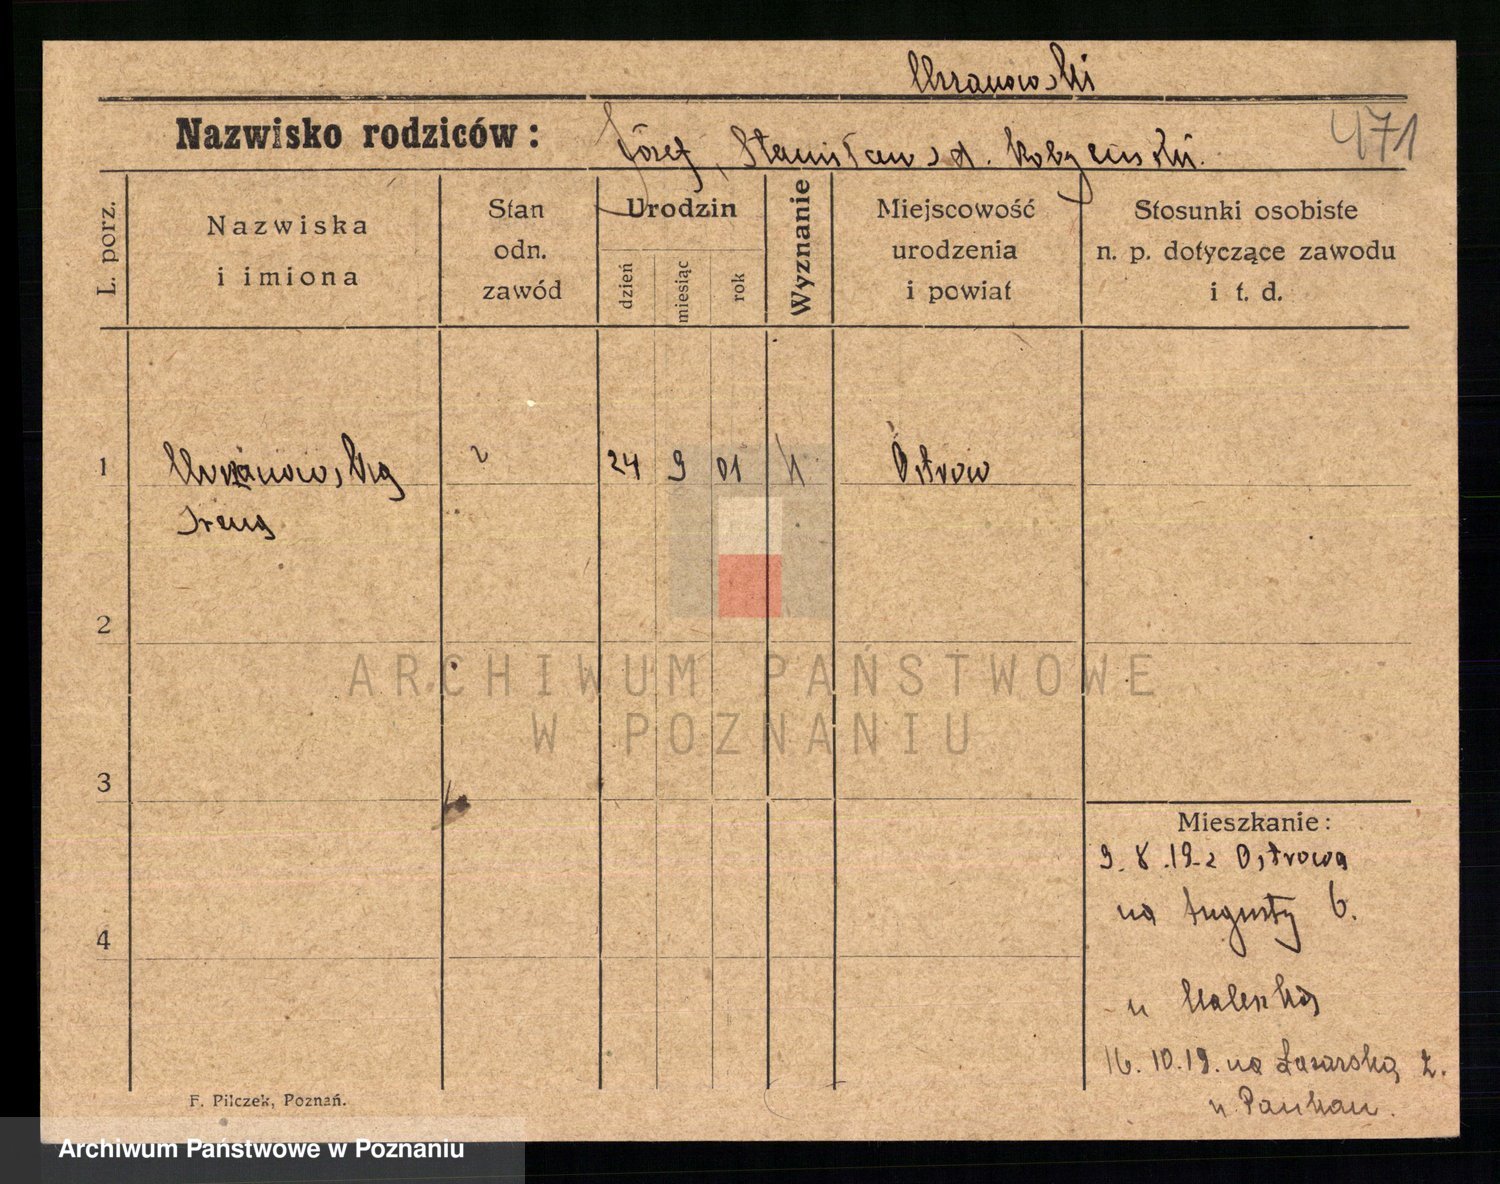 Chrzanowski
Nazwisko rodziców: Józef, Stanisława d. Kobyliński.
471
L. porz.
Nazwiska
i imiona
Stan
odn.
zawód
Urodzin
dzień
miesiąc
rok
Wyznanie
Miejscowość
urodzenia
i powiat
Stosunki osobiste
n. p. dotyczące zawodu
i t. d.
1 24 9 01 k Ostrow
Irena
2
3
4
Mieszkanie:
9.8.19 z Ostrowa
na Augusty 6.
u
16.10.19. na Łazarską 2.
u
F. Pilczek, Poznań.
ARCHIWUM PAŃSTWOWE
W POZNANIU
Archiwum Państwowe w Poznaniu